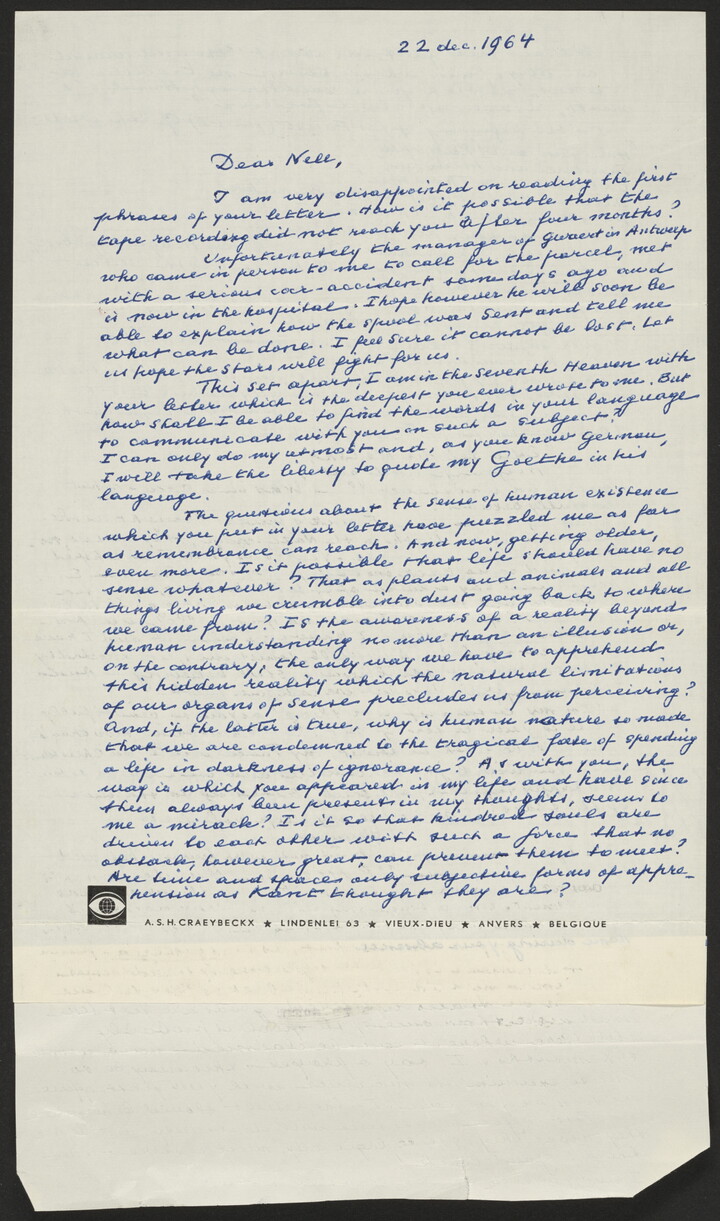 22 dec. 1964
Dear Nell,
I am very disappointed on reading the first
phrases of your letter. How is it possible that the
tape recording did not reach you after four months?
Unfortunately the manager of Gevaert in Antwerp
who came in person to me to call for the parcel, met
with a serious car-accident some days ago and
is now in the hospital. I hope however he will soon be
able to explain how the spool was sent and tell me
what can be done. I feel sure it cannot be lost. Let
us hope the stars will fight for us.
This set apart, I am in the Seventh Heaven with
your letter which is the deepest you ever wrote to me. But
how shall I be able to find the words in your language
to communicate with you on such a subject?
I can only do my utmost and, as you know German,
I will take the liberty to quote my Goethe in his
language.
The questions about the sense of human existence
which you put in your letter have puzzled me as far
as remembrance can reach. And now, getting older,
even more. Is it possible that life should have no
sense whatever? That as plants and animals and all
things living we crumble into dust going back to where
we came from? Is the awareness of a reality beyond
human understanding no more than an illusion or,
on the contrary, the only way we have to apprehend
this hidden reality which the natural limitations
of our organs of sense precludes us from perceiving?
And, if the latter is true, why is human nature so made
that we are condemned to the tragical fate of spending
a life in darkness of ignorance? As with you, the
way in which you appeared in my life and have since
then always been present in my thoughts, seems to
me a miracle? Is it so that kindred souls are
driven to each other with such a force that no
obstacle, however great, can prevent them to meet?
Are time and spaces only subjective forms of appre-
hension as Kant thought they are?
A.S.H. CRAEYBECKX ★ LINDENLEI 63 ★ VIEUX-DIEU ★ ANVERS ★ BELGIQUE